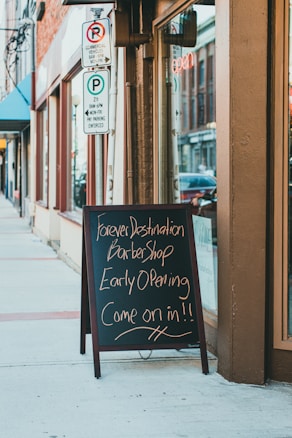 open
P
P
Forever Destination
BarberShop
Early Opening
Come on in!!